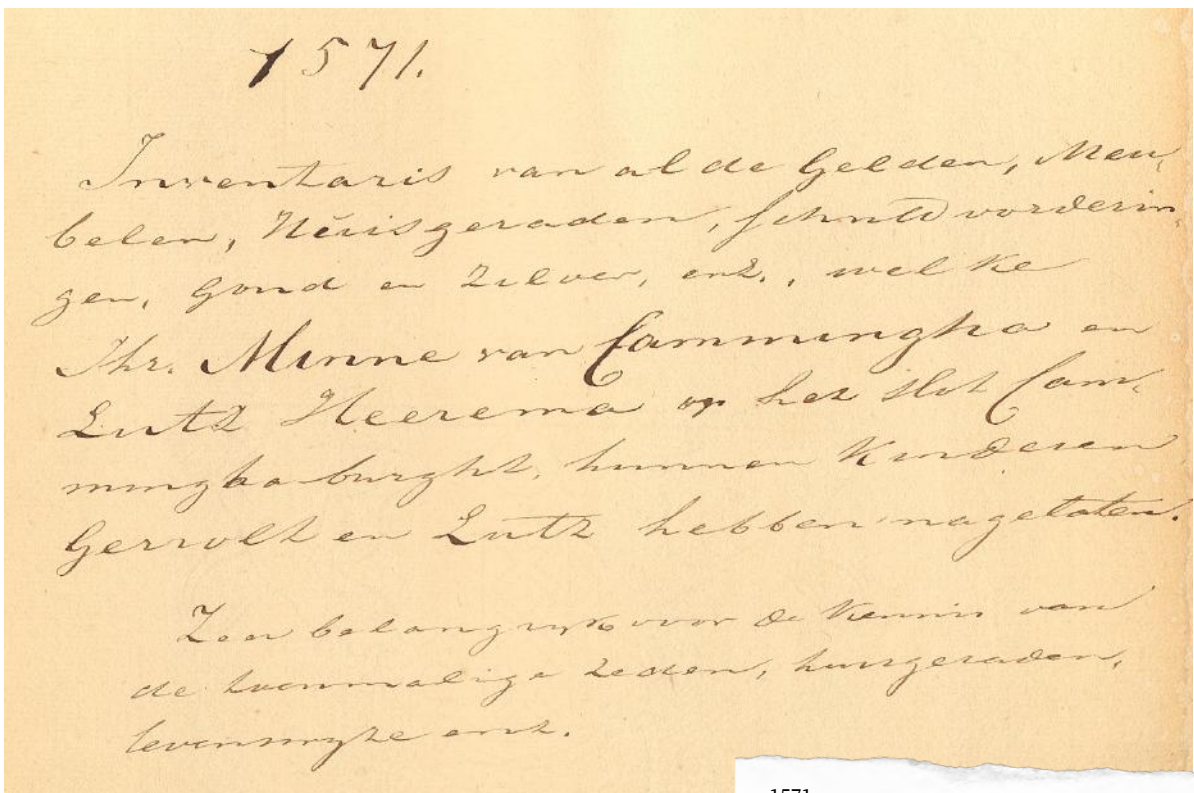 1571.
Inventaris van al de Gelden, Meu-
belen, Huisgeraden, schuldvorderin-
gen, Goud en Zilver, enz., welke
Jhr. Minne van Cammingha en
Lutz Heerema op het slot Cam-
mingha burght, hunnen Kinderen
Gerrolt en Lutz hebben nagelaten.
Zeer belangryk voor de Kennis van
de toenmalige zeden, huisgeraden,
levenswyze enz.
1571